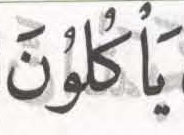 يَأْكُلُوْنَ